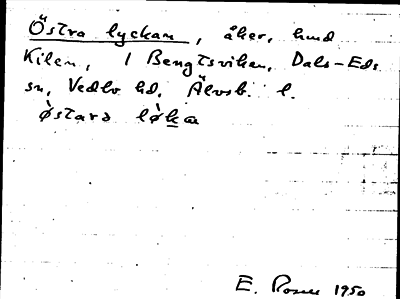 Östra lyckan, åker, hmd
Kilen, 1 Bengtsviken, Dals-Eds
sn, Vedbo hd. Älvsb. l.
østarə lø̀ka
E. 1950